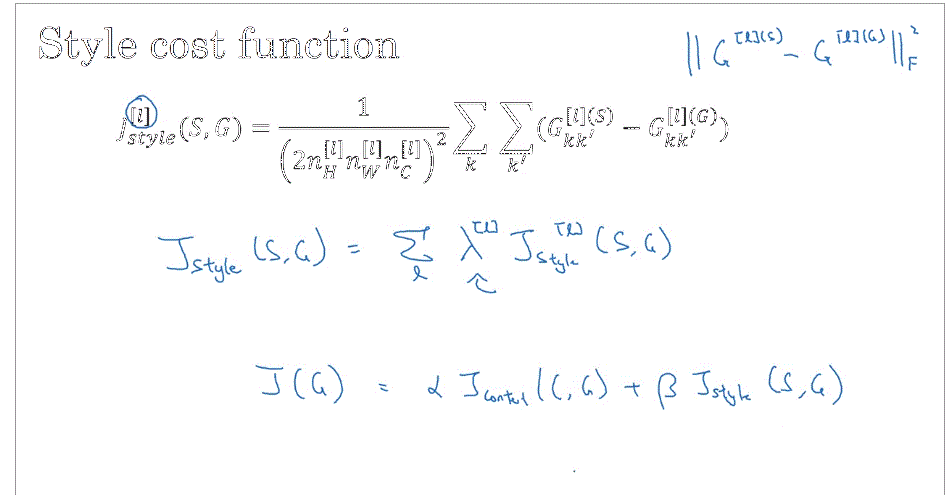 Style cost function
|| G^[l](S) − G^[l](G) ||_F^2
J_style^[l] (S, G) = 1 / (2n_H^[l] n_W^[l] n_C^[l])^2 ∑_k ∑_k′ (G_kk′^[l](S) − G_kk′^[l](G))
J_style (S,G) = ∑_l λ^[l] J_style^[l] (S,G)
J(G) = α J_content (C,G) + β J_style (S,G)